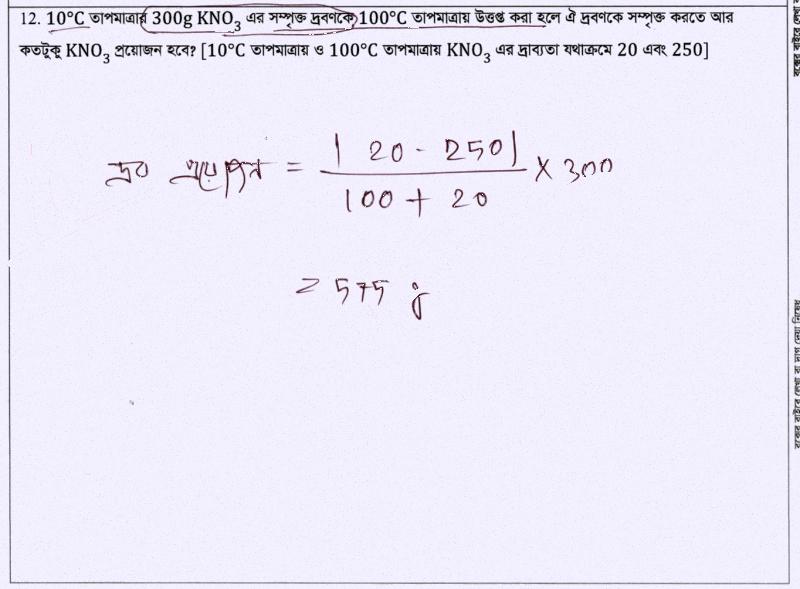 12. 10°C তাপমাত্রায় 300g KNO₃ এর সম্পৃক্ত দ্রবণকে 100°C তাপমাত্রায় উত্তপ্ত করা হলে ঐ দ্রবণকে সম্পৃক্ত করতে আর
কতটুকু KNO₃ প্রয়োজন হবে? [10°C তাপমাত্রায় ও 100°C তাপমাত্রায় KNO₃ এর দ্রাব্যতা যথাক্রমে 20 এবং 250]
দ্রব প্রয়োজন = |20 - 250| / 100 + 20 × 300
= 575 g